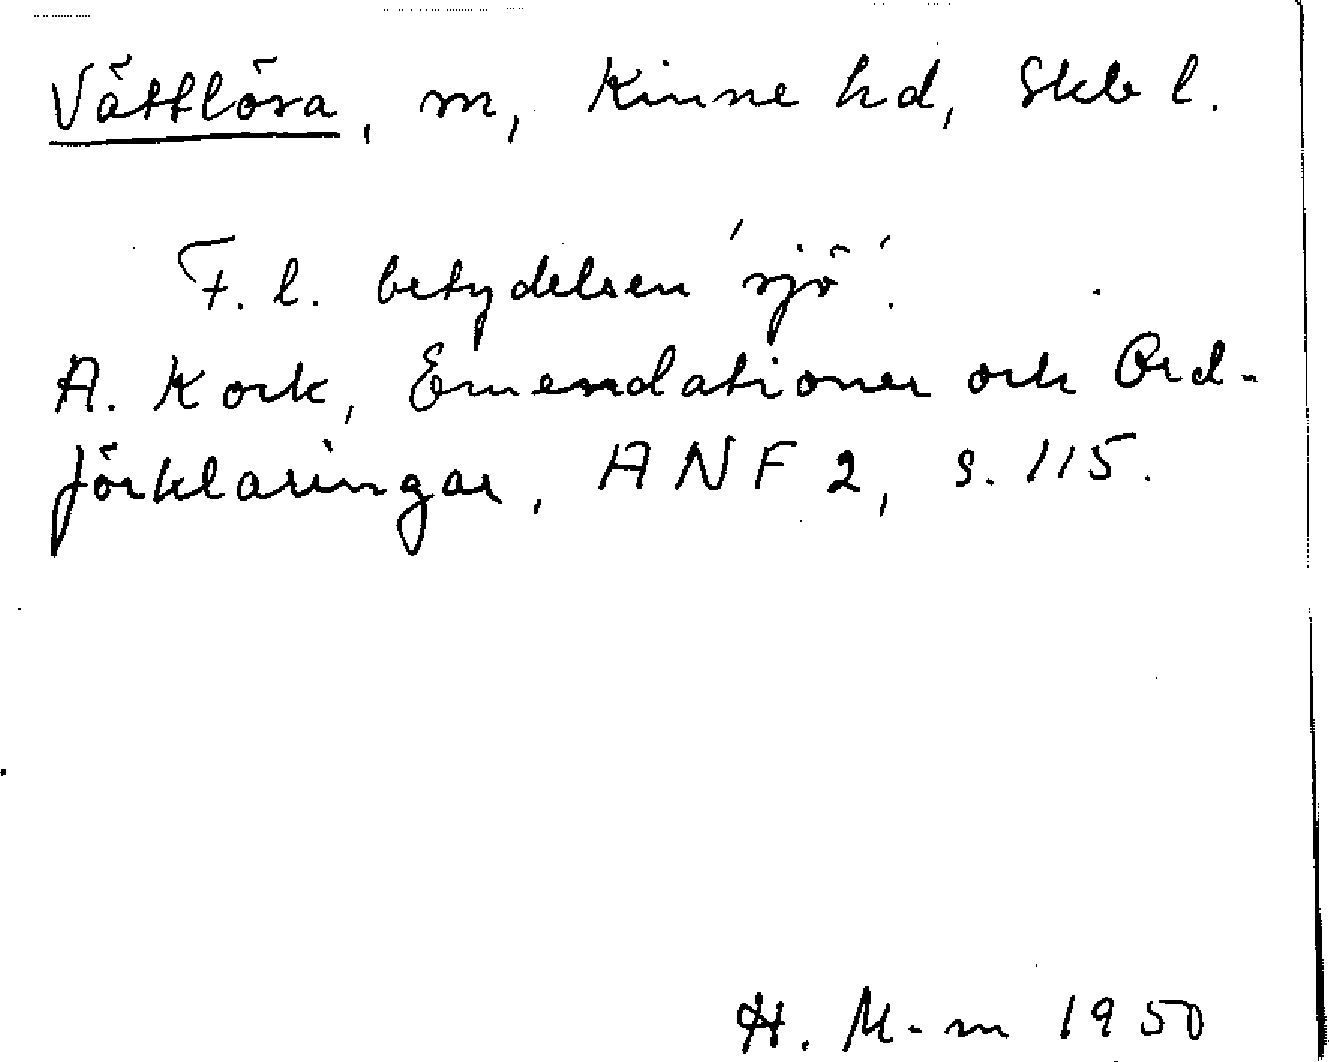 Vättlösa, sn, Kinne hd, Skb l.
F. l. betydelsen 'sjö'.
A. Kock, Emendationer och Ord-
förklaringar, ANF 2, s. 115.
H. M-m 1950